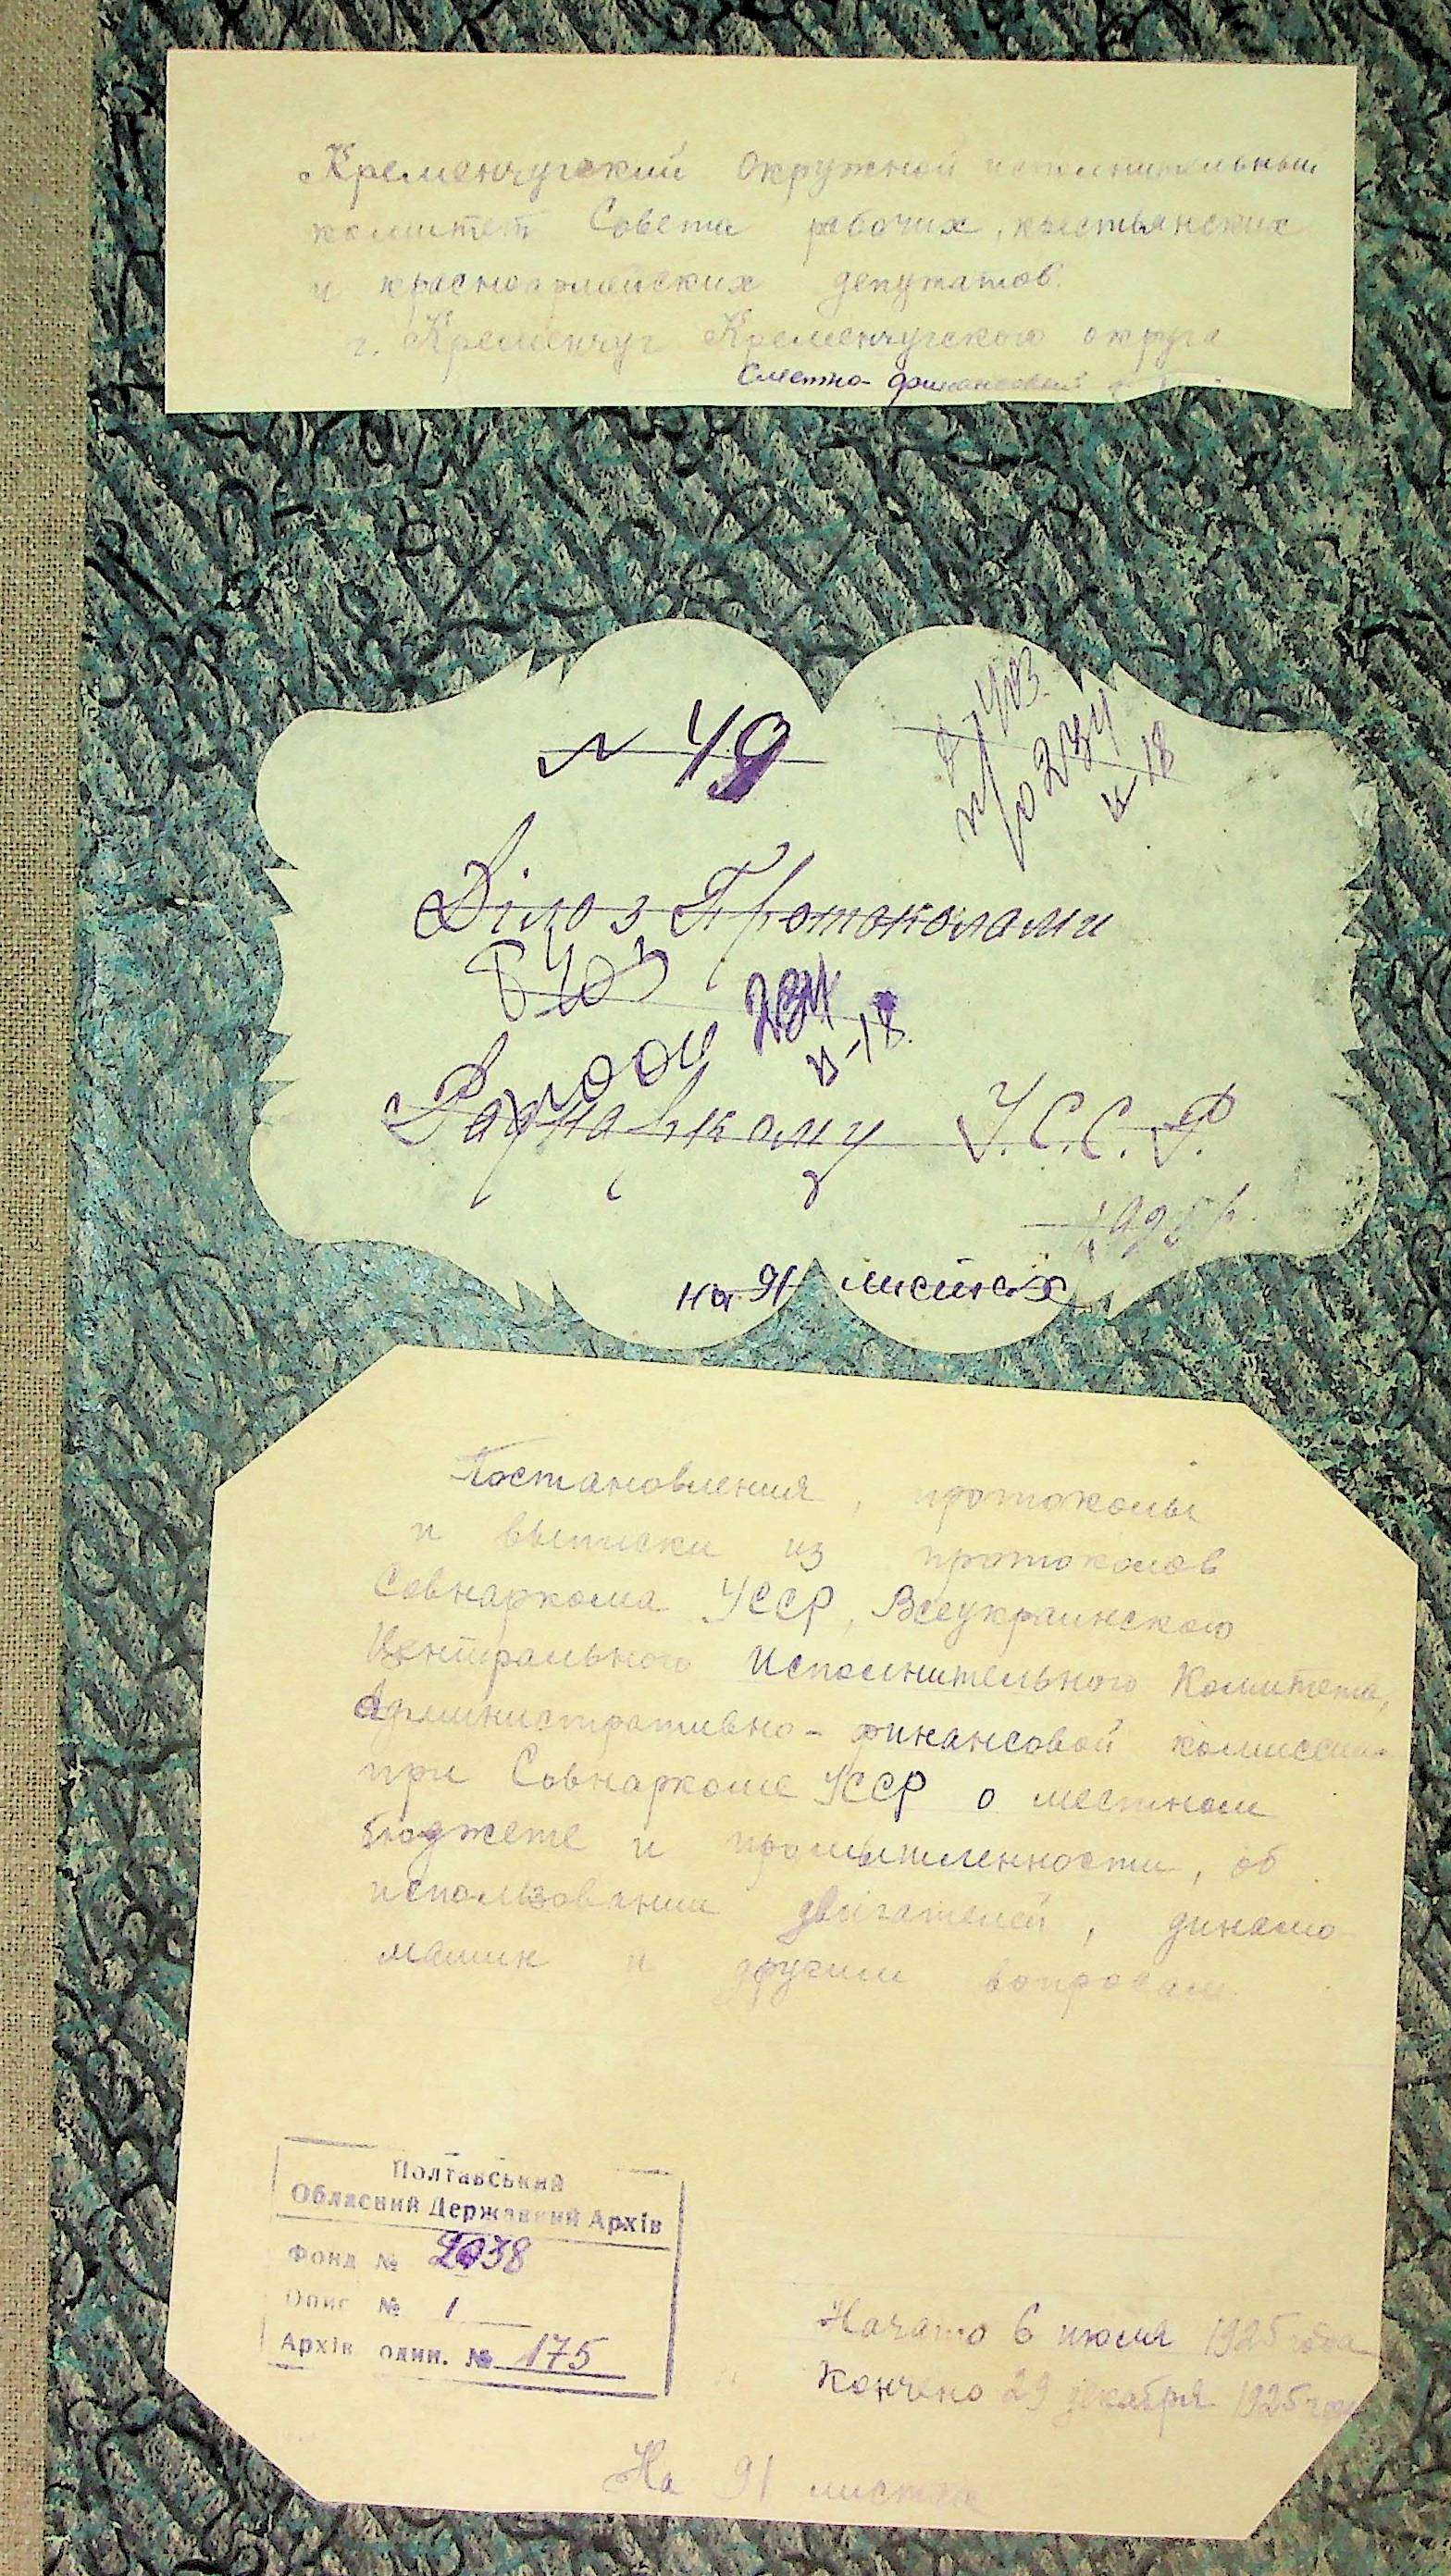 Кременчугский Окружной исполнительный
комитет Совета рабочих, крестьянских
и красноармейских депутатов.
г. Кременчуг Кременчугского округа
Сметно-финансовый
№ 49
Р-403
234
18
Діло з Протоколами
403
234
18
Раднаркому У.С.С.Р.
1925 р.
на 91 листах
Постановления, протоколы
и выписки из протоколов
Совнаркома УССР, Всеукраинского
Центрального Исполнительного Комитета,
Административно-финансовой комиссии
при Совнаркоме УССР о местном
бюджете и промышленности, об
использовании двигателей, динамо
машин и другим вопросам.
Полтавський
Обласний Державний Архів
Фонд № 2038
Опис № 1
Архів один. № 175
Начато 6 июля 1925 года
Кончено 29 декабря 1925 года
На 91 листах